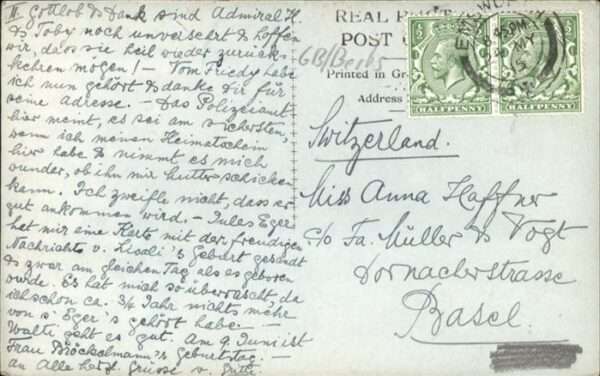 II Gottlob & Dank sind Admiral H.
& Toby noch unversehrt & hoffen
wir, dass sie heil wieder zurück-
kehren mögen! – Vom Friedy habe
ich nun gehört & danke Dir für
seine Adresse. – Das Polizeiamt
hier meint, es sei am sichersten,
wenn ich meinen Heimatschein
hier habe & nimmt es mich
wunder, ob ihn mir Mutter schicken
kann. Ich zweifle nicht, dass er
gut ankommen wird. – Jules Eger
hat mir eine Karte mit der freudigen
Nachricht v. Lisali's Geburt gesandt
& zwar am gleichen Tag als es geboren
wurde. Es hat mich so überrascht, da
ich schon ca. 3/4 Jahr nichts mehr
von s' Eger's gehört habe. –
Walti geht es gut. Am 9. Juni ist
Frau Bröckelmann's Geburtstag. –
An Alle herzl. Grüsse v.
GB/Berks
REAL
POST
Printed in
Address
HALFPENNY
HALFPENNY
EMSWORTH
45 PM
MY
Switzerland.
Miss Anna Haffner
c/o Fa. Müller & Vogt
Dornacherstrasse
Basel